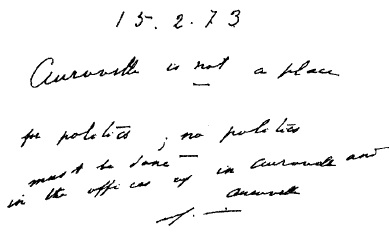 15.2.73
Auroville is not a place
for politics ; no politics
must be done in Auroville and
in the offices of Auroville